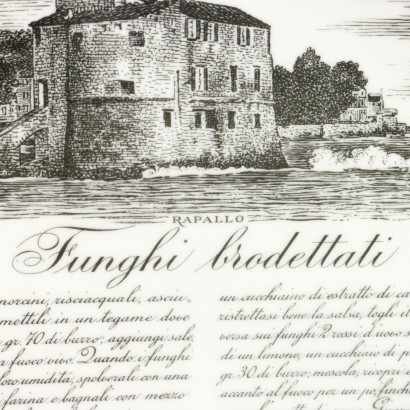 RAPALLO
Funghi brodettati
porcini, risciacquali, asciu-
mettili in un tegame dove
gr. 70 di burro, aggiungi sale,
a fuoco vivo. Quando i funghi
loro umidità, spolverali con una
farina e bagnali con mezzo
un cucchiaino di estratto di ca
ristrettasi bene la salsa, togli il
versa sui funghi 2 rossi d'uovo s
di un limone, un cucchiaio di p
gr. 30 di burro; mescola, ricopri e
accanto al fuoco per un po', finch